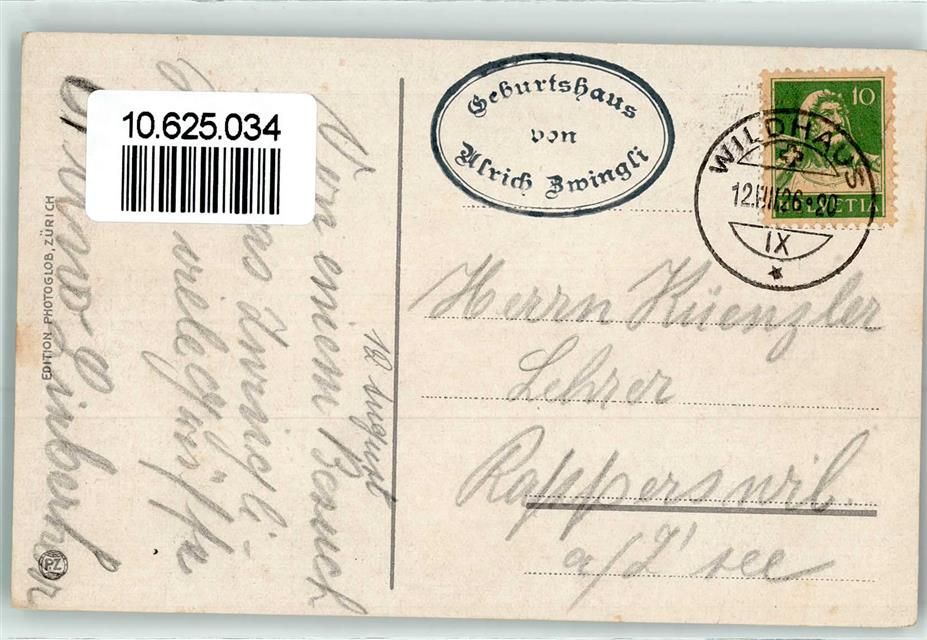 10.625.034
Geburtshaus
von
Ulrich Zwingli
10
HELVETIA
WILDHAUS
12.VIII.26-20
IX
Herrn Küenzler
Lehrer
Rapperswil.
a/Z' see
12 August
Von einem Besuch
Zwingli-
viele Grüsse
EDITION PHOTOGLOB, ZÜRICH
PZ